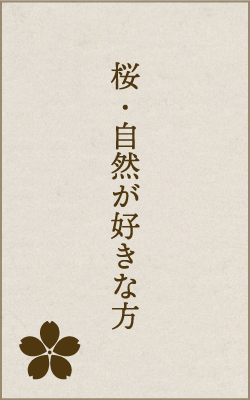 桜・自然が好きな方